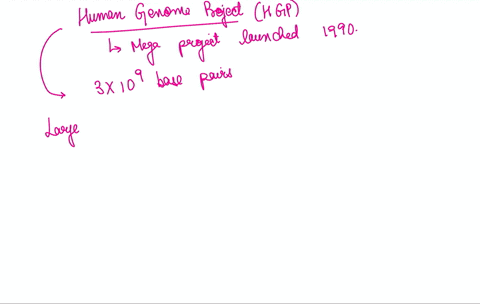 Human Genome Project (HGP)
↳ Mega project launched 1990.
3X10⁹ base pairs
Large